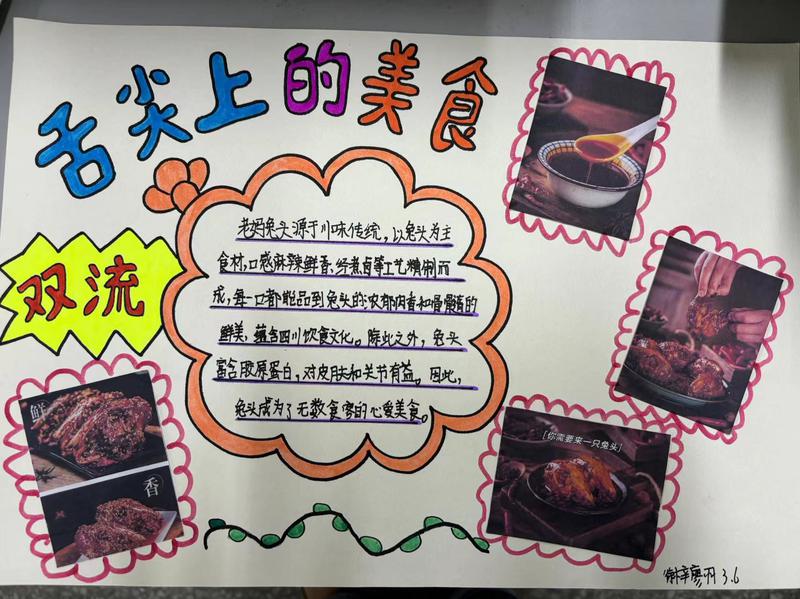 舌尖上的美食
双流
老妈兔头源于川味传统，以兔头为主
食材，口感麻辣鲜香，经煮卤等工艺精制而
成，每一口都能品到兔头的浓郁肉香和骨髓的
鲜美，蕴含四川饮食文化。除此之外，兔头
富含胶原蛋白，对皮肤和关节有益。因此，
兔头成为了无数食客的心爱美食。
鲜
香
[你需要来一只兔头]
3.6